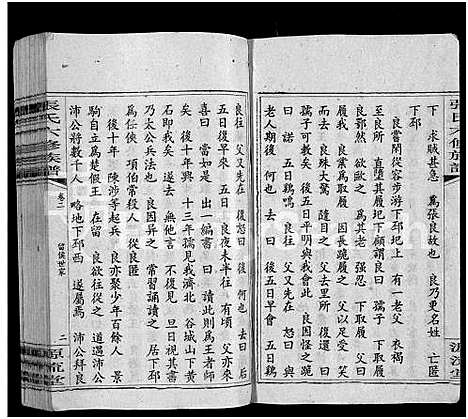 張氏六修族譜
下 求賊甚急 爲張良故也 良乃更名姓 亡匿
下邳
良嘗閒從容步游下邳圯上 有一老父 衣褐
至良所 直墮其履圯下 顧謂良曰 孺子 下取履
良鄂然 欲歐之 爲其老 强忍 下取履 父曰
履我 良業爲取履 因長跪履之 父以足受 笑
而去 良殊大驚 隨目之 父去里所 復還 曰
孺子可教矣 後五日平明與我會此 良因怪之 跪
曰 諾 五日平明 良往 父已先在 怒曰 與老人
期 後 何也 去 曰 後五日早會 五日鷄鳴
良往 父又先在 復怒曰 後 何也 去 曰 後
五日復早來 五日 良夜未半往 有頃 父亦來
喜曰 當如是 出一編書 曰 讀此則爲王者師
矣 後十年興 十三年孺子見我濟北 谷城山下黃
石即我矣 遂去 無他言 不復見 旦日視其書
乃太公兵法也 良因異之 常習誦讀之 居下邳
爲任俠 項伯常殺人 從良匿
後十年 陳涉等起兵 良亦聚少年百餘人 景
駒自立爲楚假王 在留 良欲往從之 道遇沛公
沛公將數千人 略地下邳西 遂屬焉 沛公拜良
張氏六修族譜 卷二 留侯世家 二